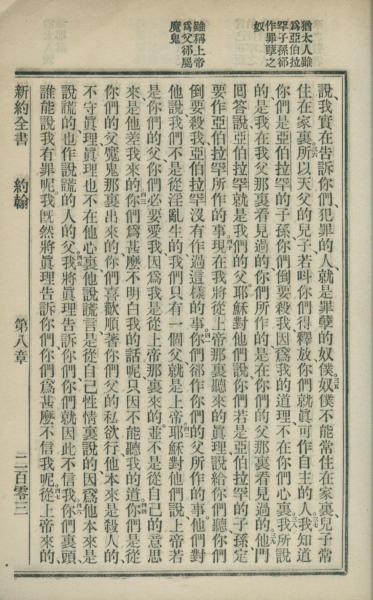 猶太人雖
爲亞伯拉
罕子孫卻
作罪孽之
奴
雖稱上帝
爲父卻屬
魔鬼
說我實在告訴你們犯罪的人就是罪孽的奴僕奴僕不能常住在家裏兒子常
住在家裏所以天父的兒子若呌你們得釋放你們就眞可作自主的人我知道
你們是亞伯拉罕的子孫你們倒要殺我因爲我的道理不在你們心裏我所說
的是我在我父那裏看見過的你們所作的是在你們的父那裏看見過的他們
囘答說亞伯拉罕就是我們的父耶穌對他們說你們若是亞伯拉罕的子孫定
要作亞伯拉罕所作的事現在我將從上帝那裏聽來的眞理說給你們聽你們
倒要殺我亞伯拉罕沒有作過這樣的事你們卻作你們的父所作的事他們對
他說我們不是從淫亂生的我們只有一個父就是上帝耶穌對他們說上帝若
是你們的父你們必要愛我因爲我是從上帝那裏來的並不是從自己的意思
來是他差我來的你們爲甚麽不明白我的話呢只因不能聽我的道你們是從
你們的父魔鬼那裏出來的你們喜歡順著你們父的私欲行他本來是殺人的
不守眞理眞理也不在他心裏他說謊言是從自己性情裏說的因爲他本來是
說謊的也作說謊的人的父我將眞理告訴你們你們就因此不信我你們裏頭
誰能說我有罪呢我旣然將眞理告訴你們你們爲甚麽不信我呢從上帝來的
新約全書
約翰
第八章
二百零三